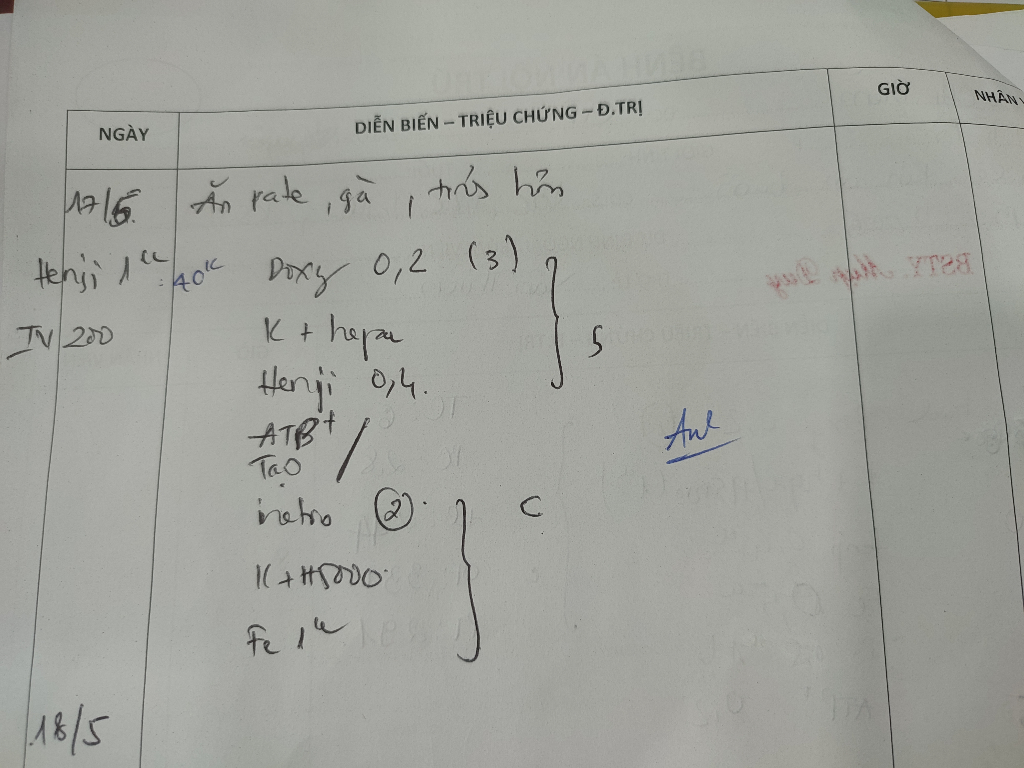 NGÀY DIỄN BIẾN – TRIỆU CHỨNG – Đ.TRỊ GIỜ NHÂN
17/5 Ăn pate, gà,
Henji 1cc = 40K Doxy 0,2 (3)
IV 200 K + hepa S
Henji 0,4.
ATB+
Tạo
metro (2) C
K + H5000
Fe 1cc
18/5